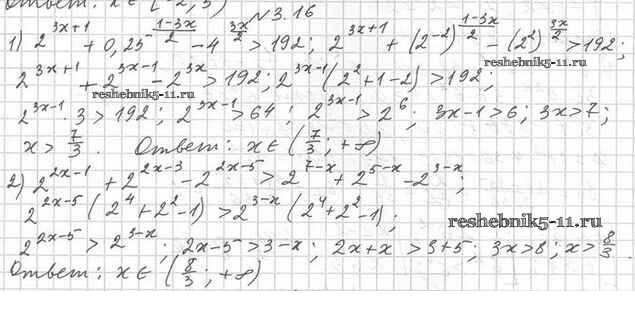 Ответ: x ∈ (-2; 5)
№ 3.16
1) 2^{3x+1} + 0,25^{\frac{1-3x}{2}} - 4^{\frac{3x}{2}} > 192; 2^{3x+1} + (2^{-2})^{\frac{1-3x}{2}} - (2^2)^{\frac{3x}{2}} > 192;
reshebnik5-11.ru
2^{3x+1} + 2^{3x-1} - 2^{3x} > 192; 2^{3x-1}(2^2+1-2) > 192;
reshebnik5-11.ru
2^{3x-1} · 3 > 192; 2^{3x-1} > 64; 2^{3x-1} > 2^6; 3x-1 > 6; 3x > 7;
x > \frac{7}{3}. Ответ: x ∈ (\frac{7}{3}; +∞)
2) 2^{2x-1} + 2^{2x-3} - 2^{2x-5} > 2^{7-x} + 2^{5-x} - 2^{3-x};
2^{2x-5}(2^4+2^2-1) > 2^{3-x}(2^4+2^2-1);
reshebnik5-11.ru
2^{2x-5} > 2^{3-x}; 2x-5 > 3-x; 2x+x > 3+5; 3x > 8; x > \frac{8}{3}.
Ответ: x ∈ (\frac{8}{3}; +∞)